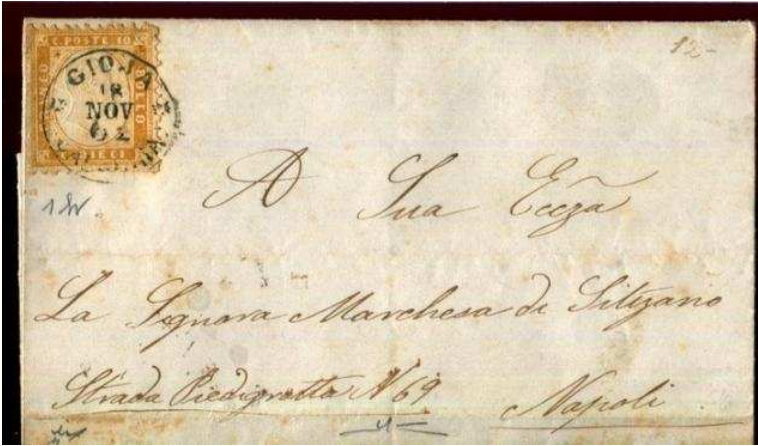 C. POSTE 10
GIOJA
18
NOV
62
C. DIECI
12-
A Sua Ecc̃za
La Signora Marchesa di Sitizano
Strada Piedigrotta N 69
Napoli